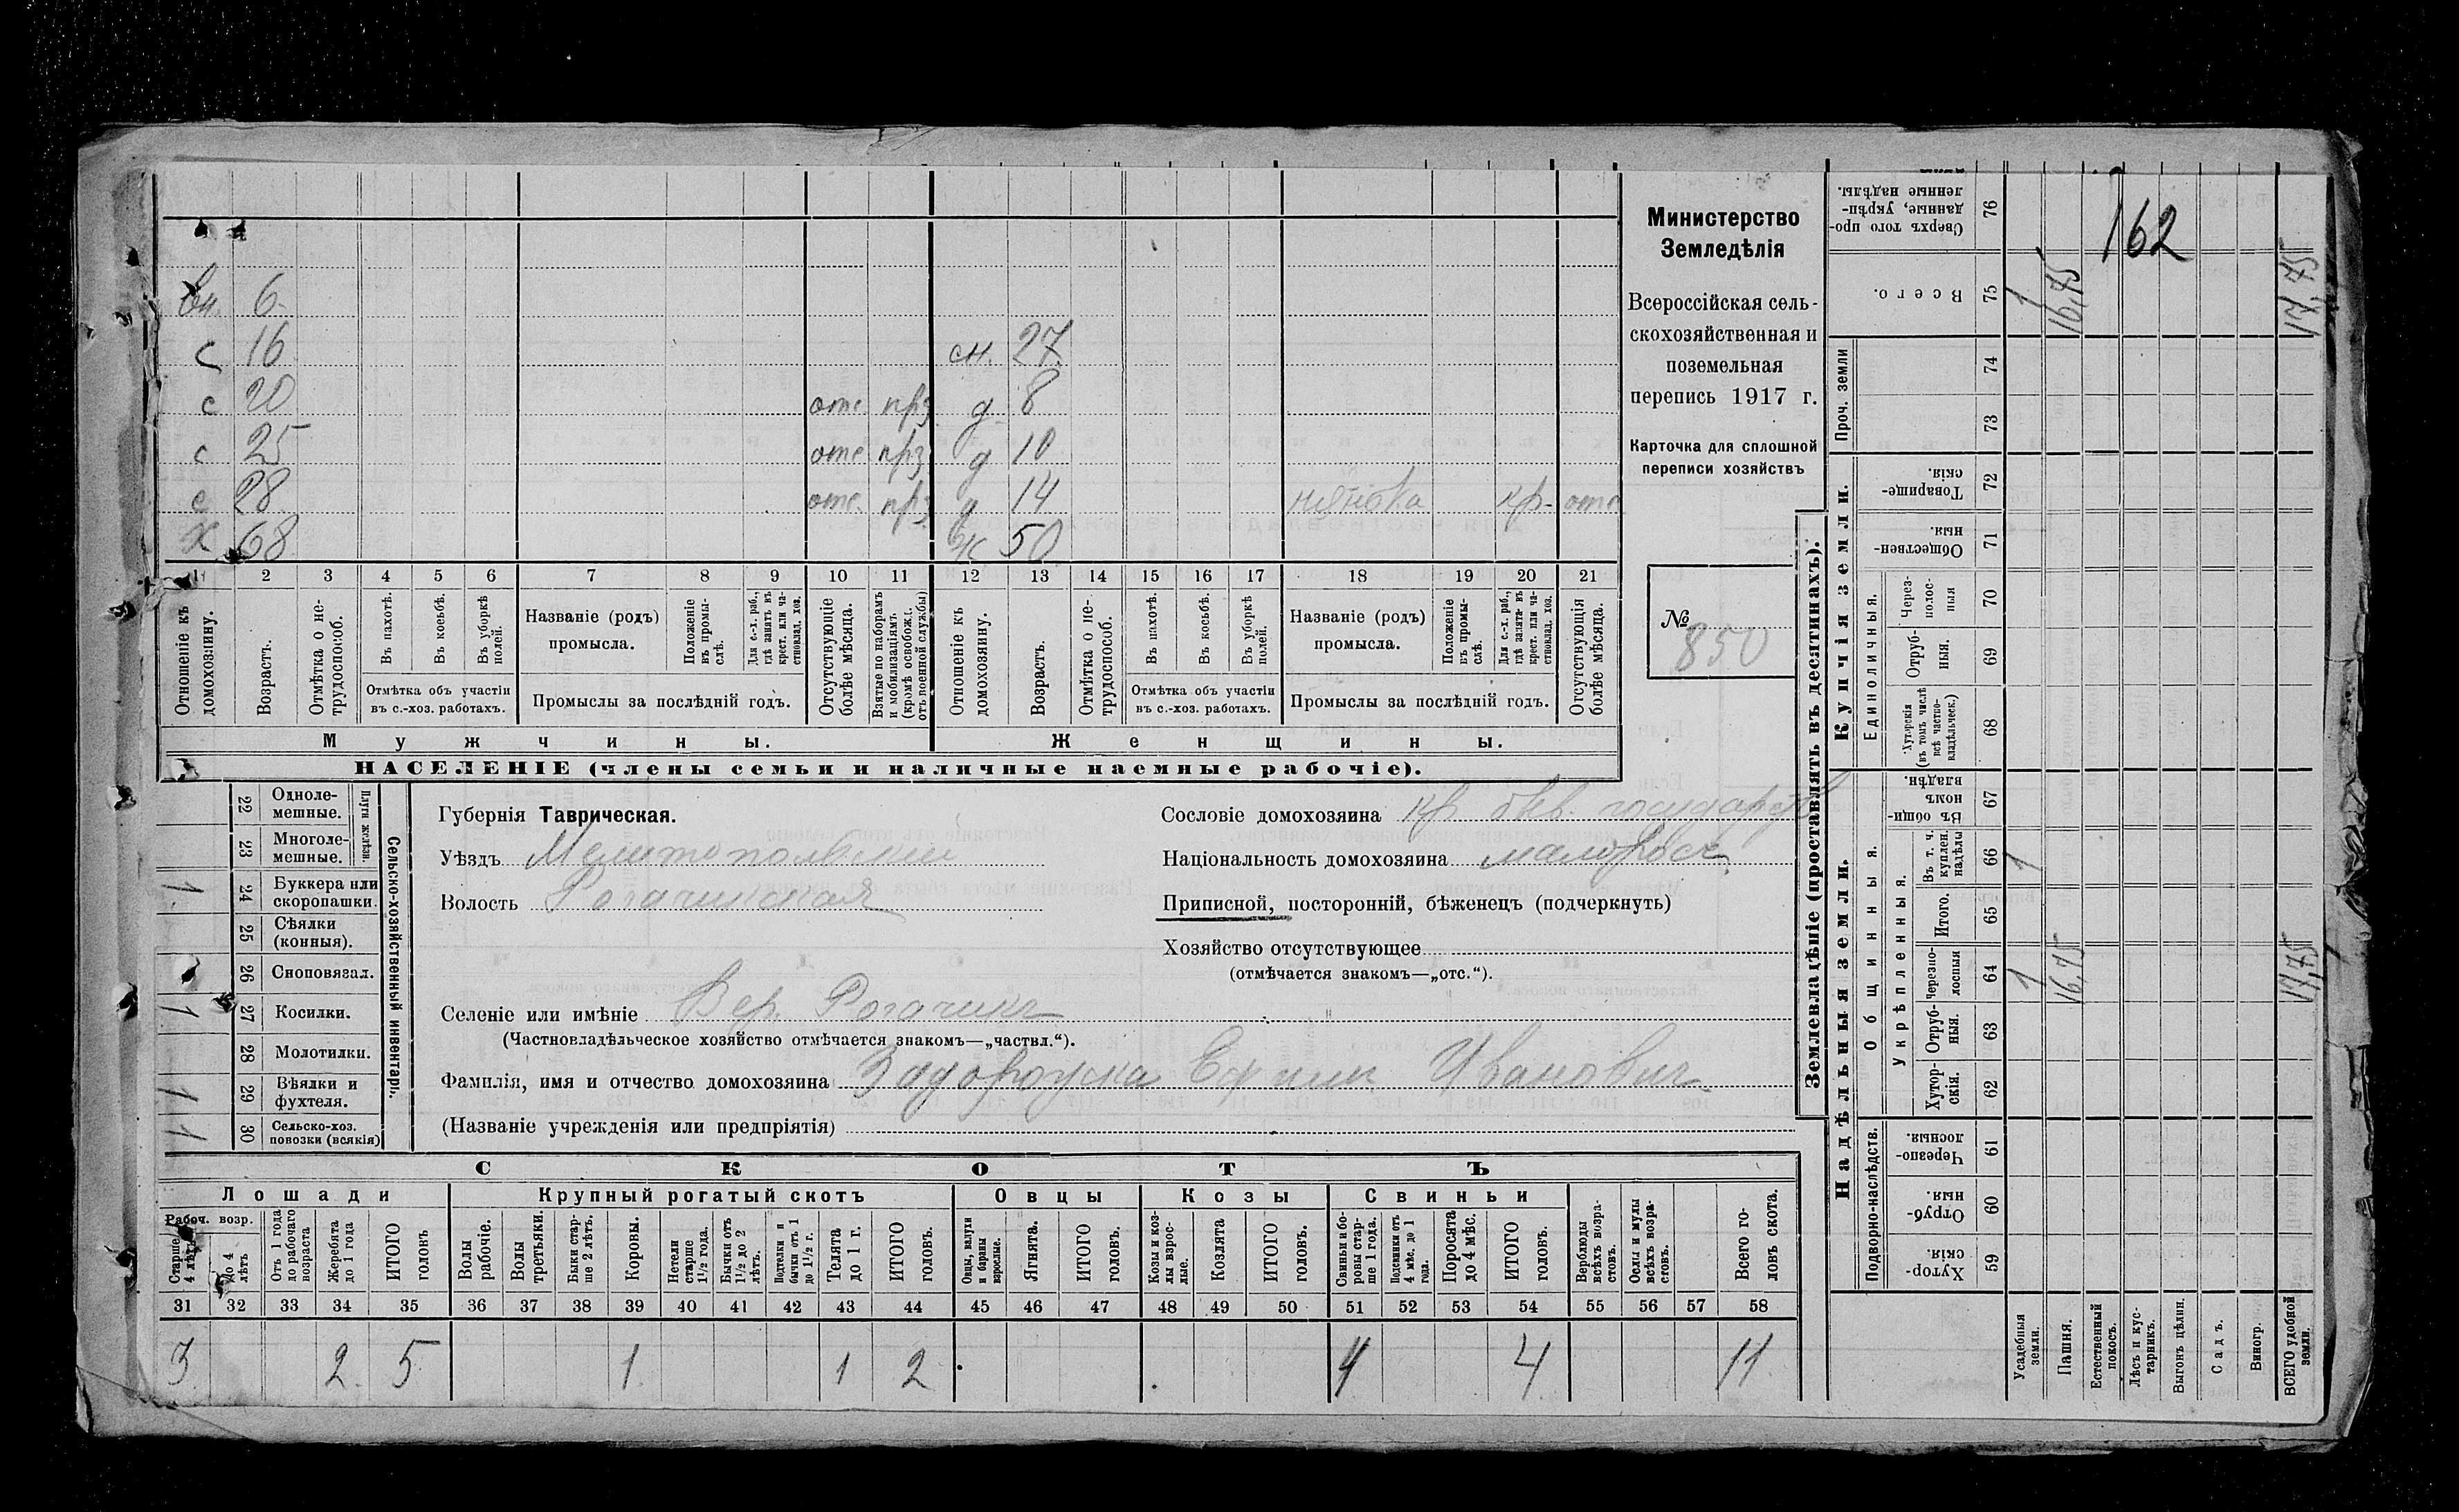 162
Министерство
Земледѣлія
Всероссійская сель-
скохозяйственная и
поземельная
перепись 1917 г.
Карточка для сплошной
переписи хозяйствъ
№ 850
вн. 6
с 16 сн. 27
с 20 отс прз д 8
с 25 отс прз д 10
с 28 отс. прз д 14 кр. отс
х 68 ж 50
1 2 3 4 5 6 7 8 9 10 11 12 13 14 15 16 17 18 19 20 21
Отношеніе къ домохозяину.
Возрастъ.
Отмѣтка о не-трудоспособ.
Въ пахотѣ.
Въ косьбѣ.
Въ уборкѣ полей.
Отмѣтка объ участіи
въ с.-хоз. работахъ.
Названіе (родъ)
промысла.
Положеніе въ промы-слѣ.
Для с.-х. раб., гдѣ занятъ въ крест. или ча-стновлад. хоз.
Промыслы за послѣдній годъ.
Отсутствующіе болѣе мѣсяца.
Взятые по наборамъ и мобилизаціямъ (кромѣ освобожд. отъ военной службы)
Отношеніе къ домохозяину.
Возрастъ.
Отмѣтка о не-трудоспособ.
Въ пахотѣ.
Въ косьбѣ.
Въ уборкѣ полей.
Отмѣтка объ участіи
въ с.-хоз. работахъ.
Названіе (родъ)
промысла.
Положеніе въ промы-слѣ.
Для с.-х. раб., гдѣ занята въ крест. или ча-стновлад. хоз.
Промыслы за послѣдній годъ.
Отсутствующія болѣе мѣсяца.
Мужчины. Женщины.
НАСЕЛЕНІЕ (члены семьи и наличные наемные рабочіе).
Сельско-хозяйственный инвентарь.
Плуги желѣзн.
22 Одноле-мешные.
23 Многоле-мешные.
1 24 Буккера или скоропашки.
25 Сѣялки (конныя).
26 Сноповязал.
1 27 Косилки.
28 Молотилки.
1 29 Вѣялки и фухтеля.
1 30 Сельско-хоз. повозки (всякія)
Губернія Таврическая.
Уѣздъ Мелитопольскій
Волость Рогачикская
Сословіе домохозяина кр. быв. государств
Національность домохозяина малоросс
Приписной, посторонній, бѣженецъ (подчеркнуть)
Хозяйство отсутствующее
(отмѣчается знакомъ—„отс.“).
Селеніе или имѣніе Вер. Рогачикъ
(Частновладѣльческое хозяйство отмѣчается знакомъ—„частвл.“).
Фамилія, имя и отчество домохозяина Ефим Иванович
(Названіе учрежденія или предпріятія)
СКОТЪ
Лошади Крупный рогатый скотъ Овцы Козы Свиньи
Рабоч. возр.
Старше 4 лѣтъ
До 4 лѣтъ
Отъ 1 года до рабочаго возраста
Жеребята до 1 года
ИТОГО головъ
Волы рабочіе.
Волы третьяки.
Быки стар-ше 2 лѣтъ.
Коровы.
Нетели старше 1 1/2 года.
Бычки отъ 1 1/2 до 2 лѣтъ.
Подтелки и бычки отъ 1 до 1 1/2 г.
Телята до 1 г.
ИТОГО головъ.
Овцы, валухи и бараны взрослые.
Ягнята.
ИТОГО головъ.
Козы и коз-лы взрос-лые.
Козлята
ИТОГО головъ.
Свиньи и бо-ровы стар-ше 1 года.
Подсвинки отъ 4 мѣс. до 1 года.
Поросята до 4 мѣс.
ИТОГО головъ.
Верблюды всѣхъ возра-стовъ.
Ослы и мулы всѣхъ возра-стовъ.
Всего го-ловъ скота.
31 32 33 34 35 36 37 38 39 40 41 42 43 44 45 46 47 48 49 50 51 52 53 54 55 56 57 58
3 2 5 1 1 2 4 4 11
Землевладѣніе (проставлять въ десятинахъ).
Купчія земли.
Надѣльныя земли.
Сверхъ того про-данные, укрѣп-ленные надѣлы. 76
Всего. 75 1 16,75 17,75
Проч. земли 74 73
Товарище-скія. 72
Обществен-ныя. 71
Единоличныя.
Через-полос-ныя 70
Отруб-ныя. 69
Хуторскія (въ томъ числѣ всѣ частно-владѣльческ.) 68
Въ общи-номъ владѣн. 67
Общинныя.
Укрѣпленныя.
Въ т. ч. куплен. надѣлы 66 1
Итого. 65
Черезпо-лосныя 64 1 16,75 17,75
Отруб-ныя. 63
Хутор-скія. 62
Подворно-наслѣдств.
Черезпо-лосныя. 61
Отруб-ныя. 60
Хутор-скія. 59
Усадебныя земли.
Пашня.
Естественный покосъ.
Лѣсъ и кус-тарникъ.
Выгонъ цѣлин.
Садъ.
Виногр.
ВСЕГО удобной земли.